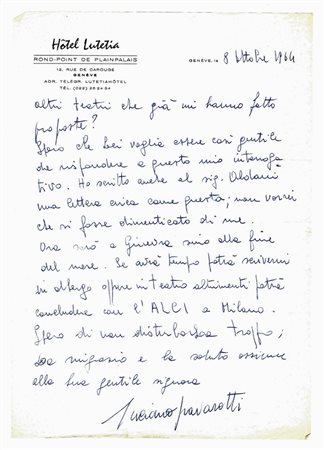 Hôtel Lutetia
ROND-POINT DE PLAINPALAIS
12, RUE DE CAROUGE
GENÈVE
ADR. TÉLÉGR. LUTETIAHÔTEL
TÉL. (022) 25 24 34
GENÈVE, LE 8 Ottobre 1964
altri teatri che già mi hanno fatto
proposte?
Spero che Lei voglia essere così gentile
de rispondere a questo mio interroga
tivo. Ho scritto anche al sig.
una lettera circa come questa; non vorrei
che si fosse dimenticato di me.
Ora sarò a Ginevra sino alla fine
del mese. Se avrà tempo potrà scrivermi
in albergo oppure in teatro altrimenti potrà
concludere con l'ALCI a Milano.
Spero di non disturbarLa troppo;
La ringrazio e La saluto assieme
alla Sua gentile signora
Luciano Pavarotti